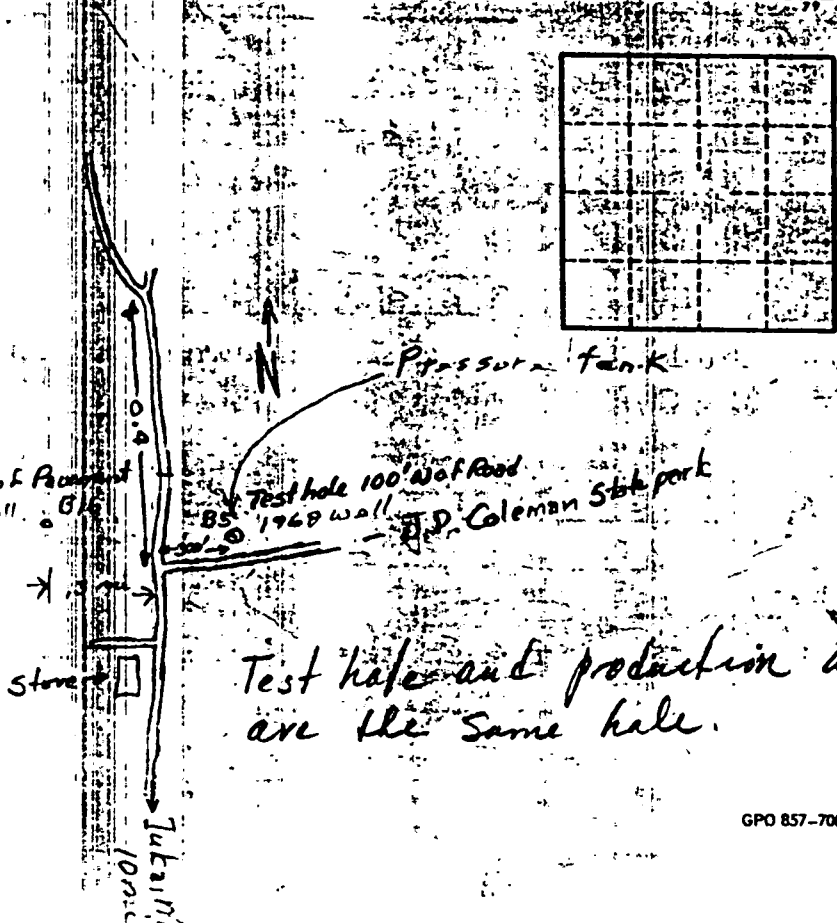 N
Pressure tank
0.4
of Pavement
B16
Test hole 100' N of Road
B5
1968 well
300'
J.P. Coleman State park
Store
Test hole and production
are the same hole.
GPO 857-700